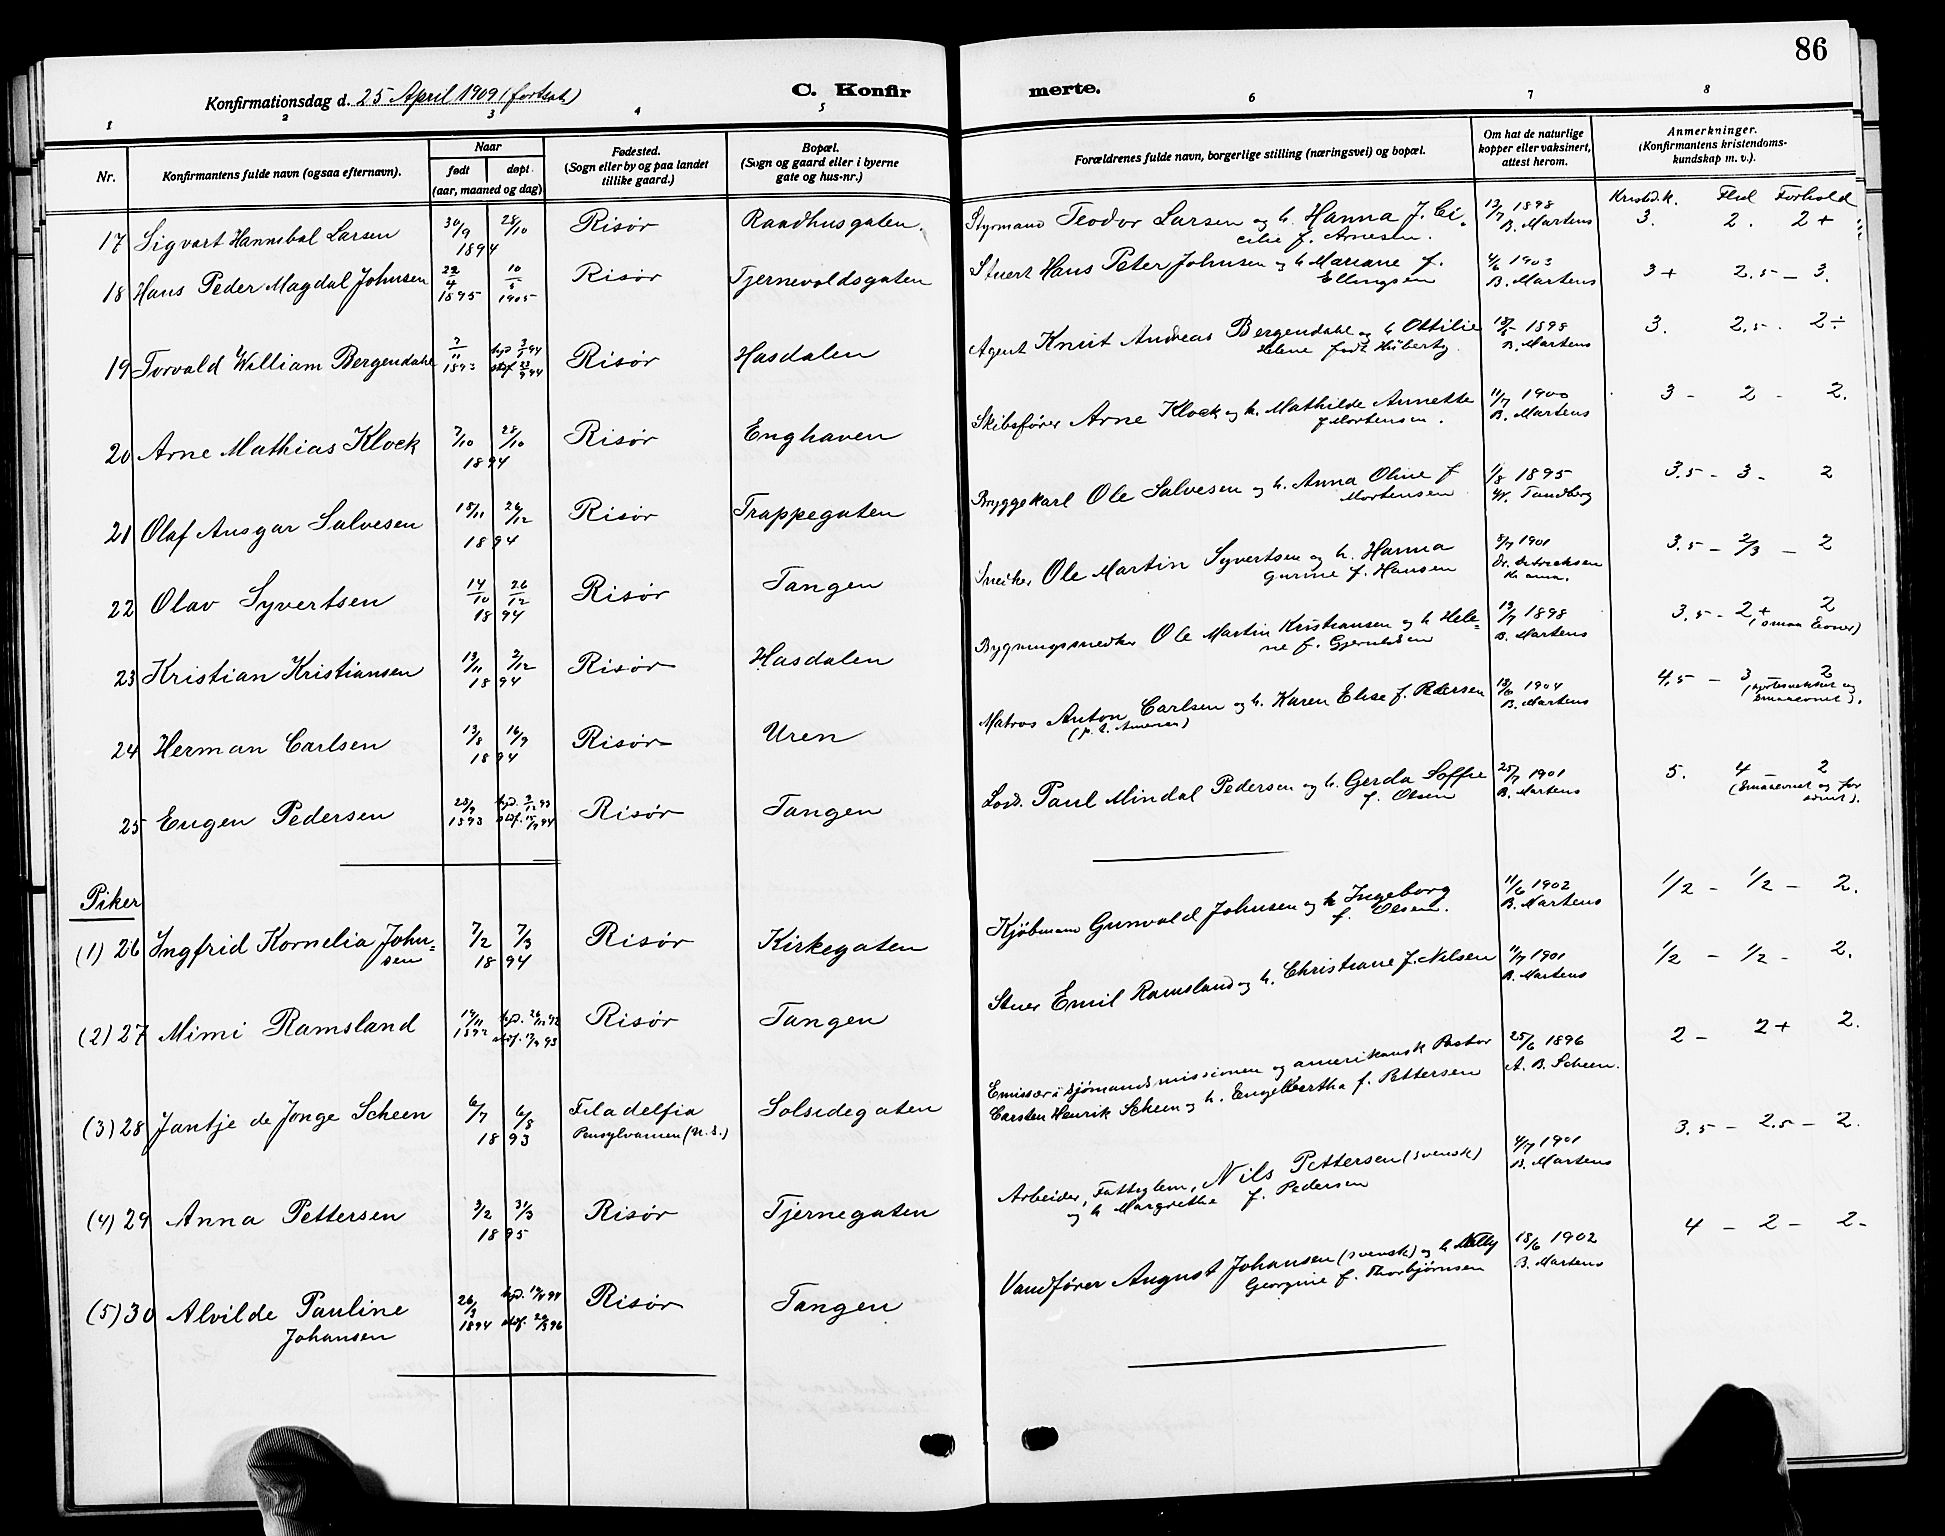 86
Konfirmationsdag d. 25 April 1909 (fortsat.)
C. Konfir
merte.
1 2 3 4 5 6 7 8
Nr.
Konfirmantens fulde navn (ogsaa efternavn).
Naar
født døpt
(aar, maaned og dag)
Fødested.
(Sogn eller by og paa landet
tillike gaard.)
Bopæl.
(Sogn og gaard eller i byerne
gate og hus-nr.)
Forældrenes fulde navn, borgerlige stilling (næringsvei) og bopæl.
Om hat de naturlige
kopper eller vaksinert,
attest herom.
Anmerkninger.
(Konfirmantens kristendoms-
kundskap m. v.).
Kristd.k. Flid Forhold
17 Sigvart Hannibal Larsen 30/9 28/10 Risør Raadhusgaten. Styrmand Teodor Larsen og h. Hanna J. Ci- 13/7 1898 3. 2. 2+
1894 cilie f. Arnesen. B. Martens
18 Hans Peder Magdal Johnsen 22/4 10/5 Risør Tjernevoldsgaten Stuert Hans Peter Johnsen og h Mariane f. 4/6 1903 3+ 2.5 - 3.
1895 1905 Ellingsen B. Martens
19 Torvald William Bergendahl 7/11 Risør Hasdalen Agent Knut Andreas Bergendahl og h Ottilie 1898 3. 2.5 - 2÷
1893 Helene født Huberty. B. Martens
20 Arne Mathias Klock 7/10 28/10 Risør Enghaven Skibsfører Arne Klock og h. Mathilde Annette 11/7 1900 3 - 2 - 2.
1894 f Mortensen. B. Martens
21 Olaf Ansgar Salvesen 18/11 26/12 Risør Trappegaten Bryggekarl Ole Salvesen og h. Anna Oline f 1/8 1895 3.5 - 3 - 2
1894 Mortensen Tandberg
22 Olav Syvertsen 14/10 26/12 Risør Tangen Sneker Ole Martin Syvertsen og h. Hanna 5/7 1901 3.5 - 2/3 - 2
1894 gurine f. Hansen Kr.ania.
23 Kristian Kristiansen 13/11 2/12 Risør Hasdalen Bygningssnedker Ole Martin Kristiansen og h Hele- 13/7 1898 3.5 - 2+ 2
1894 ne f. Gjeruldsen B. Martens (smaa Evner)
24 Herman Carlsen 13/8 16/9 Risør Uren Matros Anton Carlsen og h. Karen Elise f. Pedersen 18/6 1904 4.5 - 3 2
1894 (p. t. Amerika) B. Martens
25 Eugen Pedersen 23/9 Risør Tangen Lods. Paul Mindal Pedersen og h. Gerda Soffie 25/7 1901 5. 4 - 2
1893 f. Olsen B. Martens
Piker
(1) 26 Ingfrid Kornelia John- 7/2 7/3 Risør Kirkegaten Kjøbmann Gunvald Johnsen og h Ingeborg 11/6 1902 1/2 - 1/2 - 2.
sen 1894 f. Olsen. B. Martens
(2) 27 Mimi Ramsland 14/11 Risør Tangen Stuer Emil Ramsland og h. Christiane f. Nilsen 11/7 1901 1/2 - 1/2 - 2.
1892 B. Martens
(3) 28 Jantje de Jonge Scheen 6/7 6/8 Filadelfia Solsidegaten Emissær i Sjømandsmissionen og amerikansk Pastor 25/6 1896 2 - 2+ 2.
1893 Pensylvanien (U.S.) Carsten Henrik Scheen og h. Engelbertha f. Pettersen A. B. Scheen.
(4) 29 Anna Pettersen 3/2 31/3 Risør Tjernegaten Arbeider, Fattiglem, Nils Pettersen (svensk) 4/7 1901 3.5 - 2.5 - 2.
1895 og h Margrethe f. Pedersen B. Martens
(5) 30 Alvilde Pauline 26/3 Risør Tangen Vandfører August Johansen (svensk) og h Nelly 18/6 1902 4 - 2 - 2-
Johansen 1894 Georgine f. Thorbjørnsen B. Martens